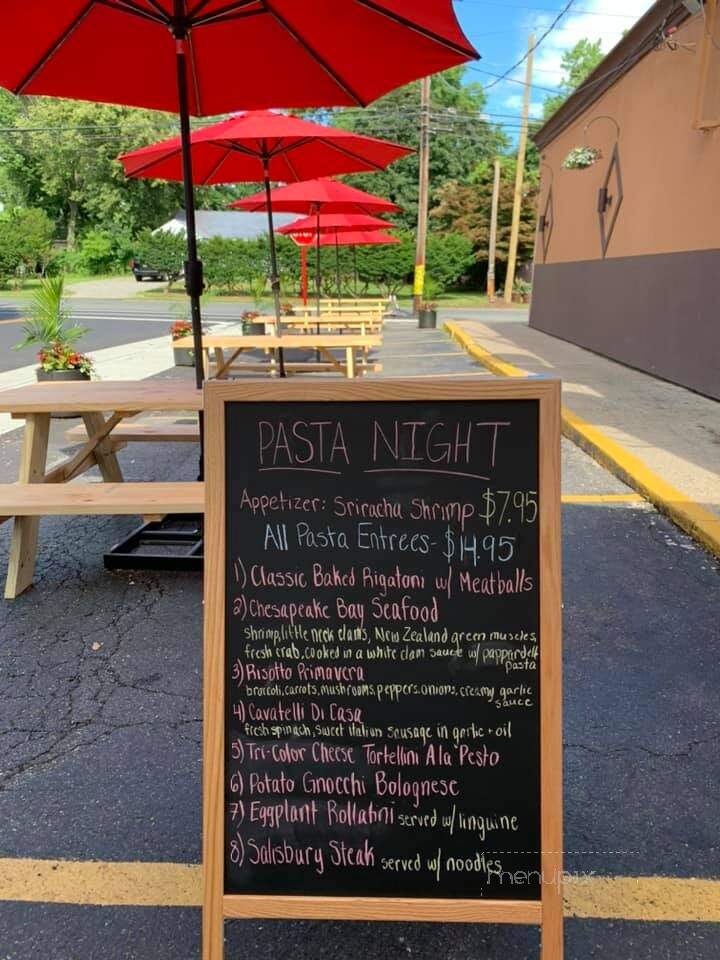 PASTA NIGHT
Appetizer: Sriracha Shrimp $7.95
All Pasta Entrees- $14.95
1) Classic Baked Rigatoni w/ Meatballs
2) Chesapeake Bay Seafood
shrimp, little neck clams, New Zealand green muscles,
fresh crab, cooked in a white clam sauce w/ pappardelle
pasta
3) Risotto Primavera
brocoli, carrots, mushrooms, peppers, onions, creamy garlic
sauce
4) Cavatelli Di Casa
fresh spinach, sweet italian sausage in garlic + oil
5) Tri-Color Cheese Tortellini Ala Pesto
6) Potato Gnocchi Bolognese
7) Eggplant Rollatini served w/ linguine
8) Salisbury Steak served w/ noodles
menupix